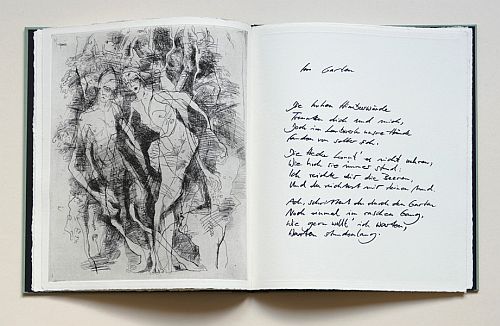 Im Garten
Die hohen Himbeerwände
Trennten dich und mich,
Doch im Laubwerk unsre Hände
Fanden von selber sich.
Die Hecke konnt' es nicht wehren,
Wie hoch sie immer stund:
Ich reichte dir die Beeren,
Und du reichtest mir deinen Mund.
Ach, schrittest du durch den Garten
Noch einmal im raschen Gang,
Wie gern wollt' ich warten,
Warten stundenlang.